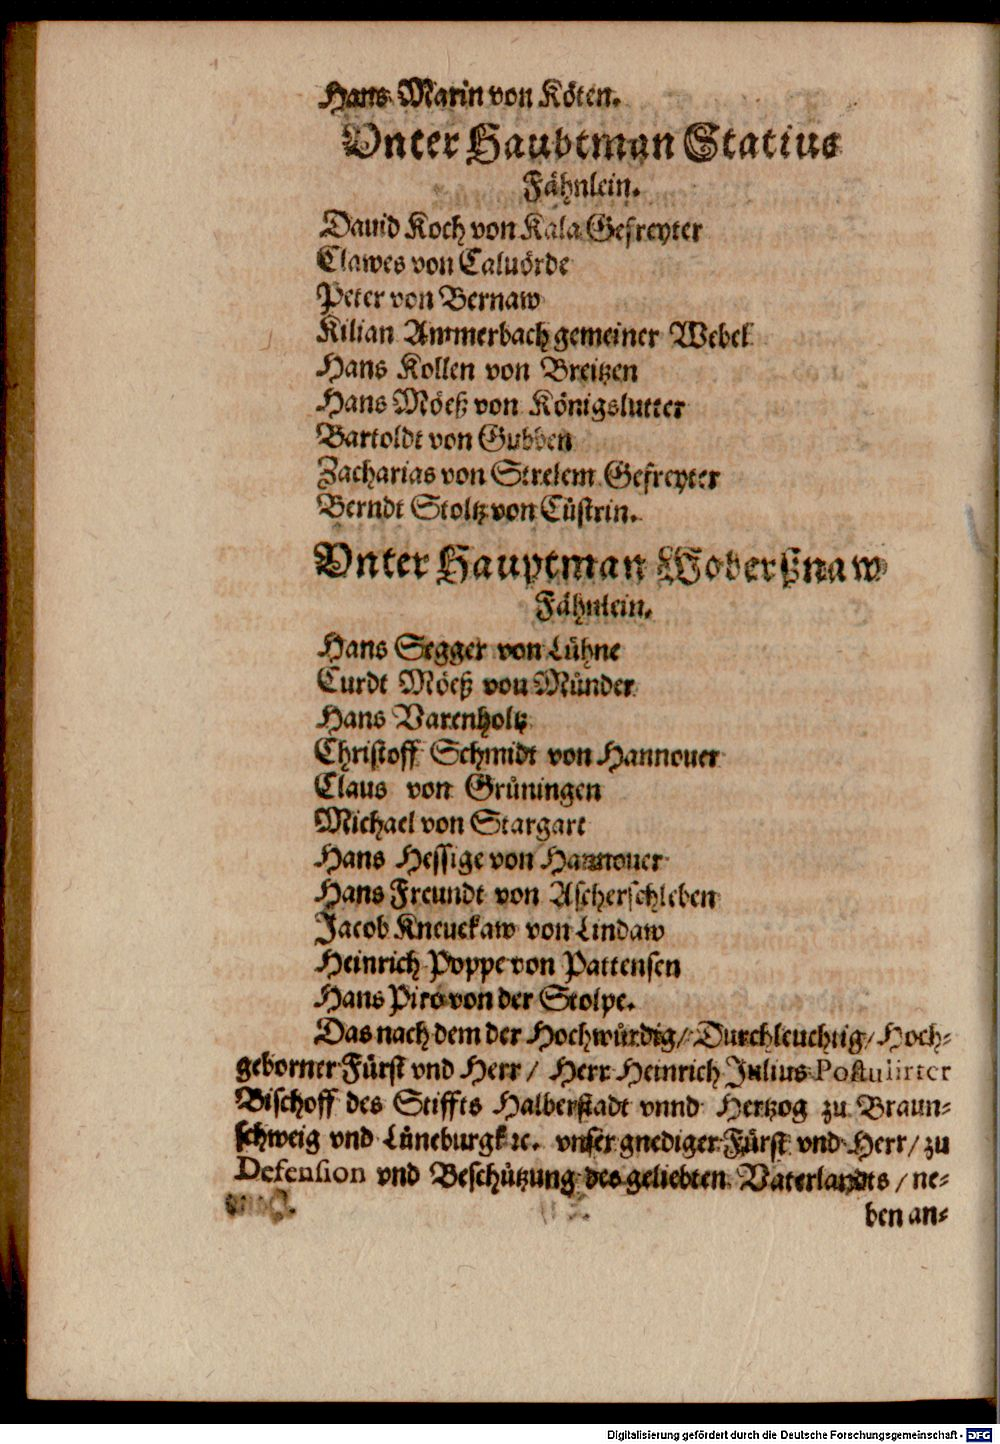 Hans Marin von Köten.
Vnter Haubtman Statius
Fähnlein.
Dauid Koch von Kala Gefreyter
Clawes von Caluörde
Peter von Bernaw
Kilian Ammerbach gemeiner Webel
Hans Kollen von Breitzen
Hans Möeß von Königslutter
Bartoldt von Gubben
Zacharias von Strelem Gefreyter
Berndt Stoltz von Cüstrin.
Vnter Hauptman Woberßnaw
Fähnlein.
Hans Segger von Lühne
Curdt Möeß von Münder
Hans Varenholtz
Christoff Schmidt von Hannouer
Claus von Grüningen
Michael von Stargart
Hans Hessige von Hannouer
Hans Freundt von Ascherschleben
Jacob Kneuekaw von Lindaw
Heinrich Poppe von Pattensen
Hans Piro von der Stolpe.
Das nach dem der Hochwürdig/ Durchleuchtig/ Hoch-
geborner Fürst vnd Herr/ Herr Heinrich Julius Postulirter
Bischoff des Stiffts Halberstadt vnnd Hertzog zu Braun-
schweig vnd Lüneburgk ꝛc. vnser gnediger Fürst vnd Herr/ zu
Defension vnd Beschützung des geliebten Vaterlandts/ ne-
ben an-
Digitalisierung gefördert durch die Deutsche Forschungsgemeinschaft - DFG